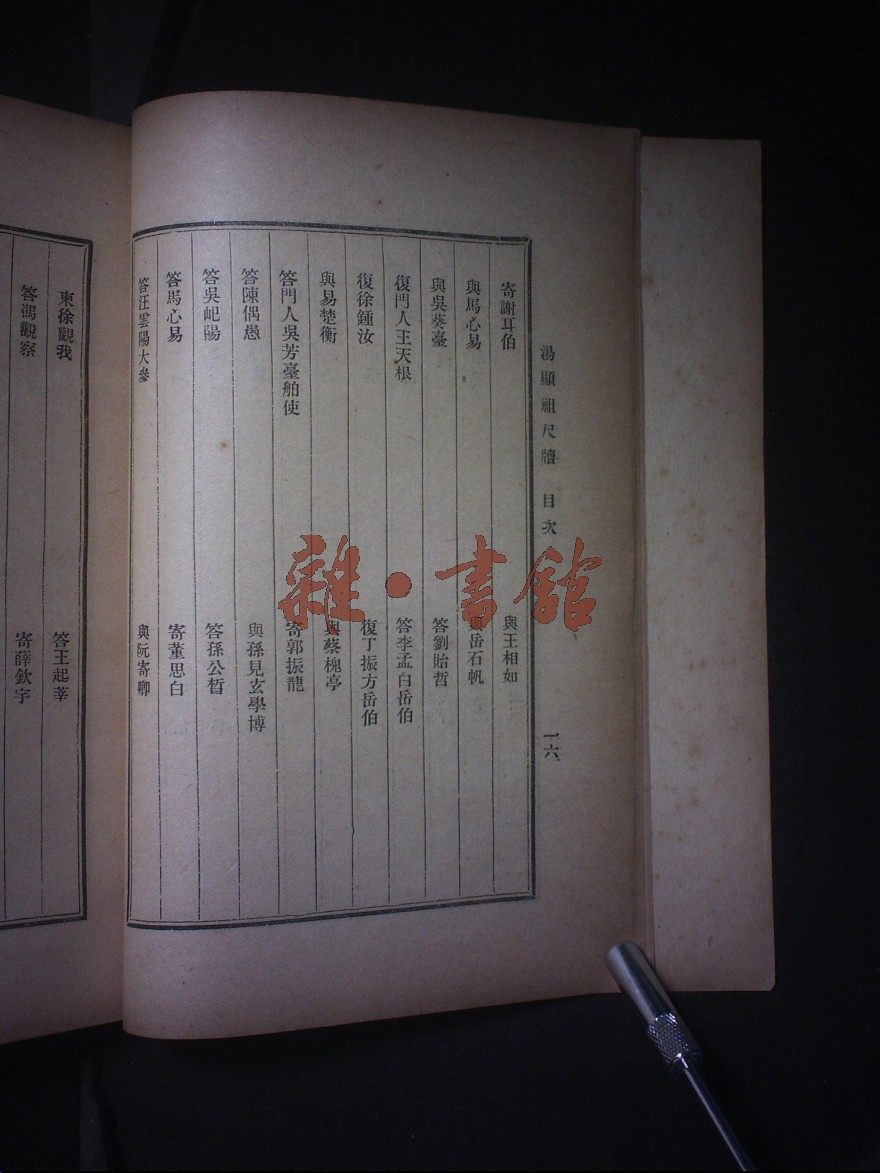 湯顯祖尺牘 目次 一六
寄謝耳伯 與王相如
與馬心易 與岳石帆
與吳葵臺 答劉貽哲
復門人王天根 答李孟白岳伯
復徐鍾汝 復丁振方岳伯
與易楚衡 與蔡槐亭
答門人吳芳臺舶使 寄郭振龍
答陳偶愚 與孫見玄學博
答吳屺陽 答孫公晳
答馬心易 寄董思白
答汪雲陽大參 與阮寄卿
柬徐觀我 答王起莘
答馮觀察 寄薛欽宇
雜·書館